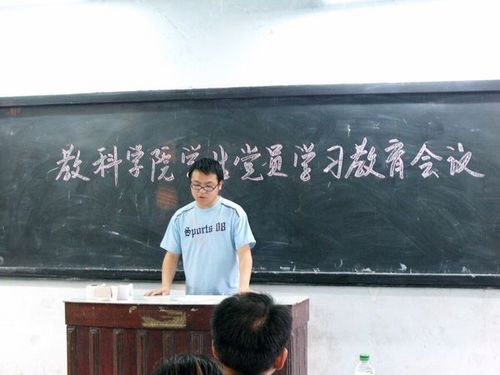 教科学院学生党员学习教育会议
Sports 08